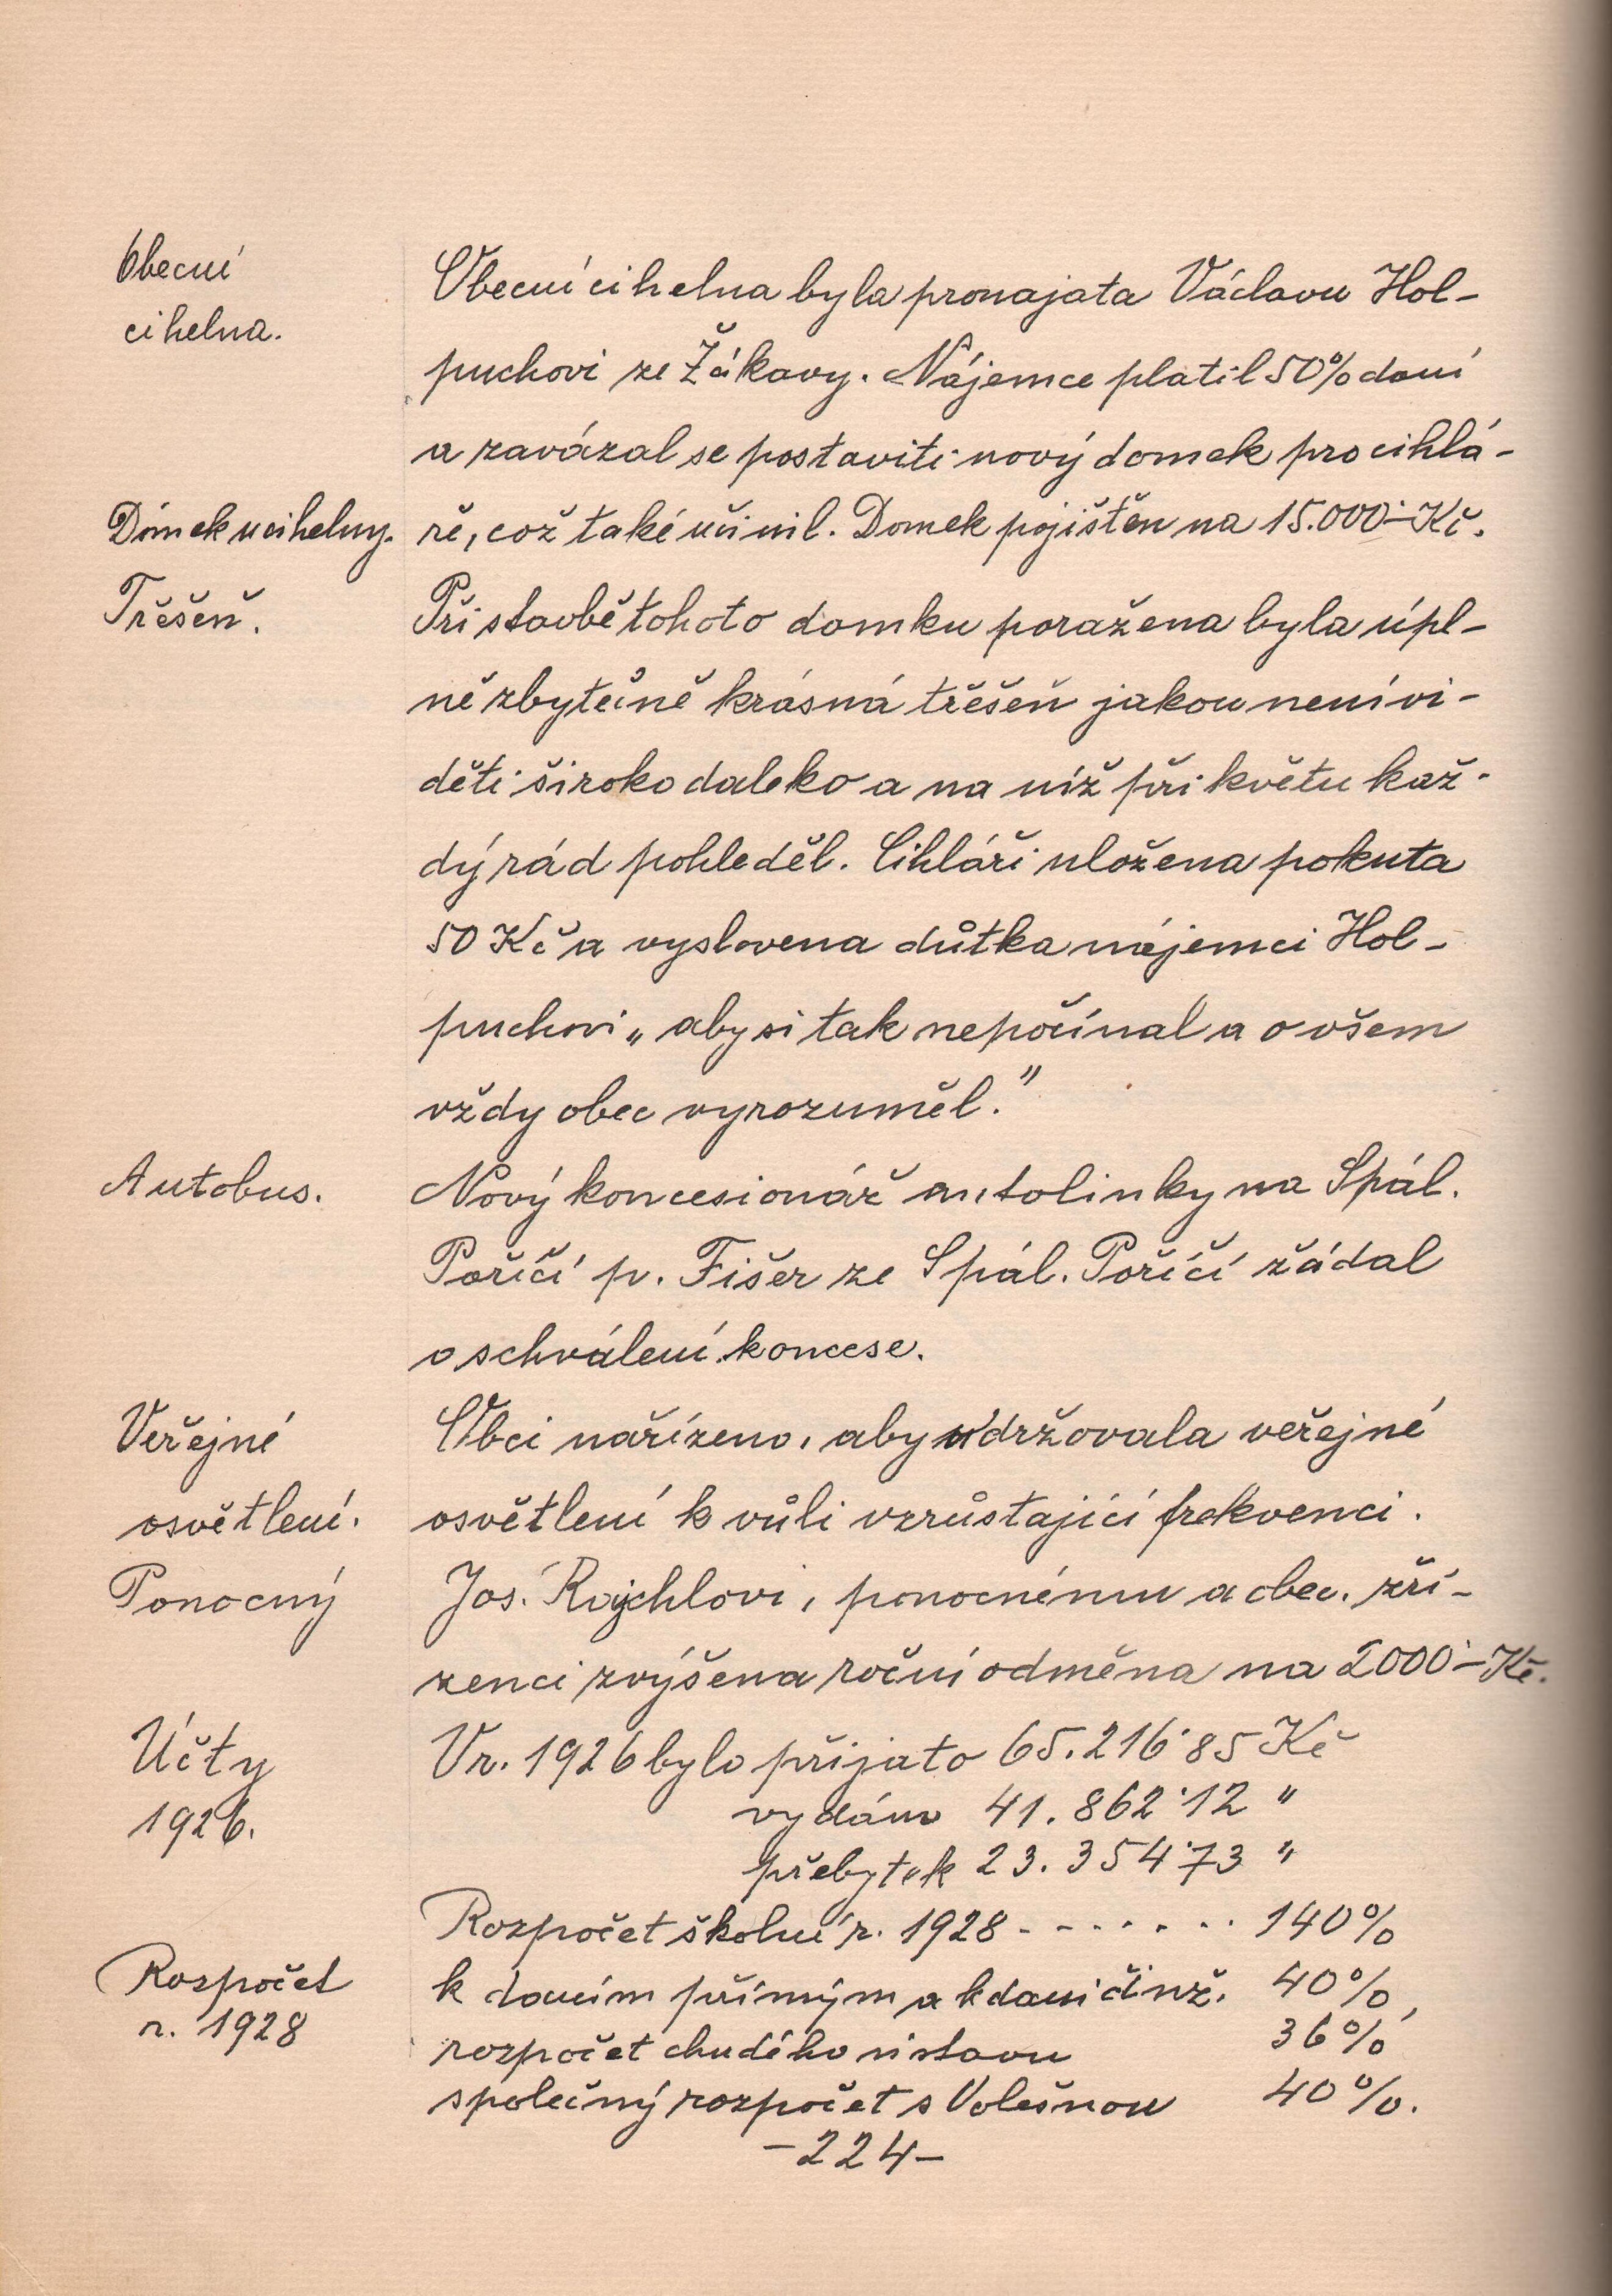 Obecní
cihelna.
Obecní cihelna byla pronajata Václavu Hol-
puchovi ze Žákavy. Nájemce platil 50% daní
a zavázal se postaviti nový domek pro cihlá-
Dómek u cihelny.
ře, což také učinil. Domek pojištěn na 15.000·-Kč.
Třešeň.
Při stavbě tohoto domku poražena byla úpl-
ně zbytečně krásná třešeň jakou není vi-
děti široko daleko a na níž při květu kaž-
dý rád pohleděl. Cihláři uložena pokuta
50 Kč a vyslovena důtka nájemci Hol-
puchovi „aby si tak nepočínal a o všem
vždy obec vyrozuměl."
Autobus.
Nový koncesionář autolinky na Spál.
Poříčí p. Fišer ze Spál. Poříčí žádal
o schválení koncese.
Veřejné
osvětlení.
Obci nařízeno, aby udržovala veřejné
osvětlení k vůli vzrůstající frekvenci.
Ponocný
Jos. Rajchlovi, ponocnému a obec. zří-
zenci zvýšena roční odměna na 2000·-Kč.
Účty
1926.
V r. 1926 bylo přijato 65.216·85 Kč
vydáno 41.862·12 "
přebytek 23.354·73 "
Rozpočet
r. 1928
Rozpočet školní r. 1928 - - - . . . . 140%
k daním přímým a k dani činž. 40%,
rozpočet chudého ústavu 36%
společný rozpočet s Volešnou 40%.
-224-